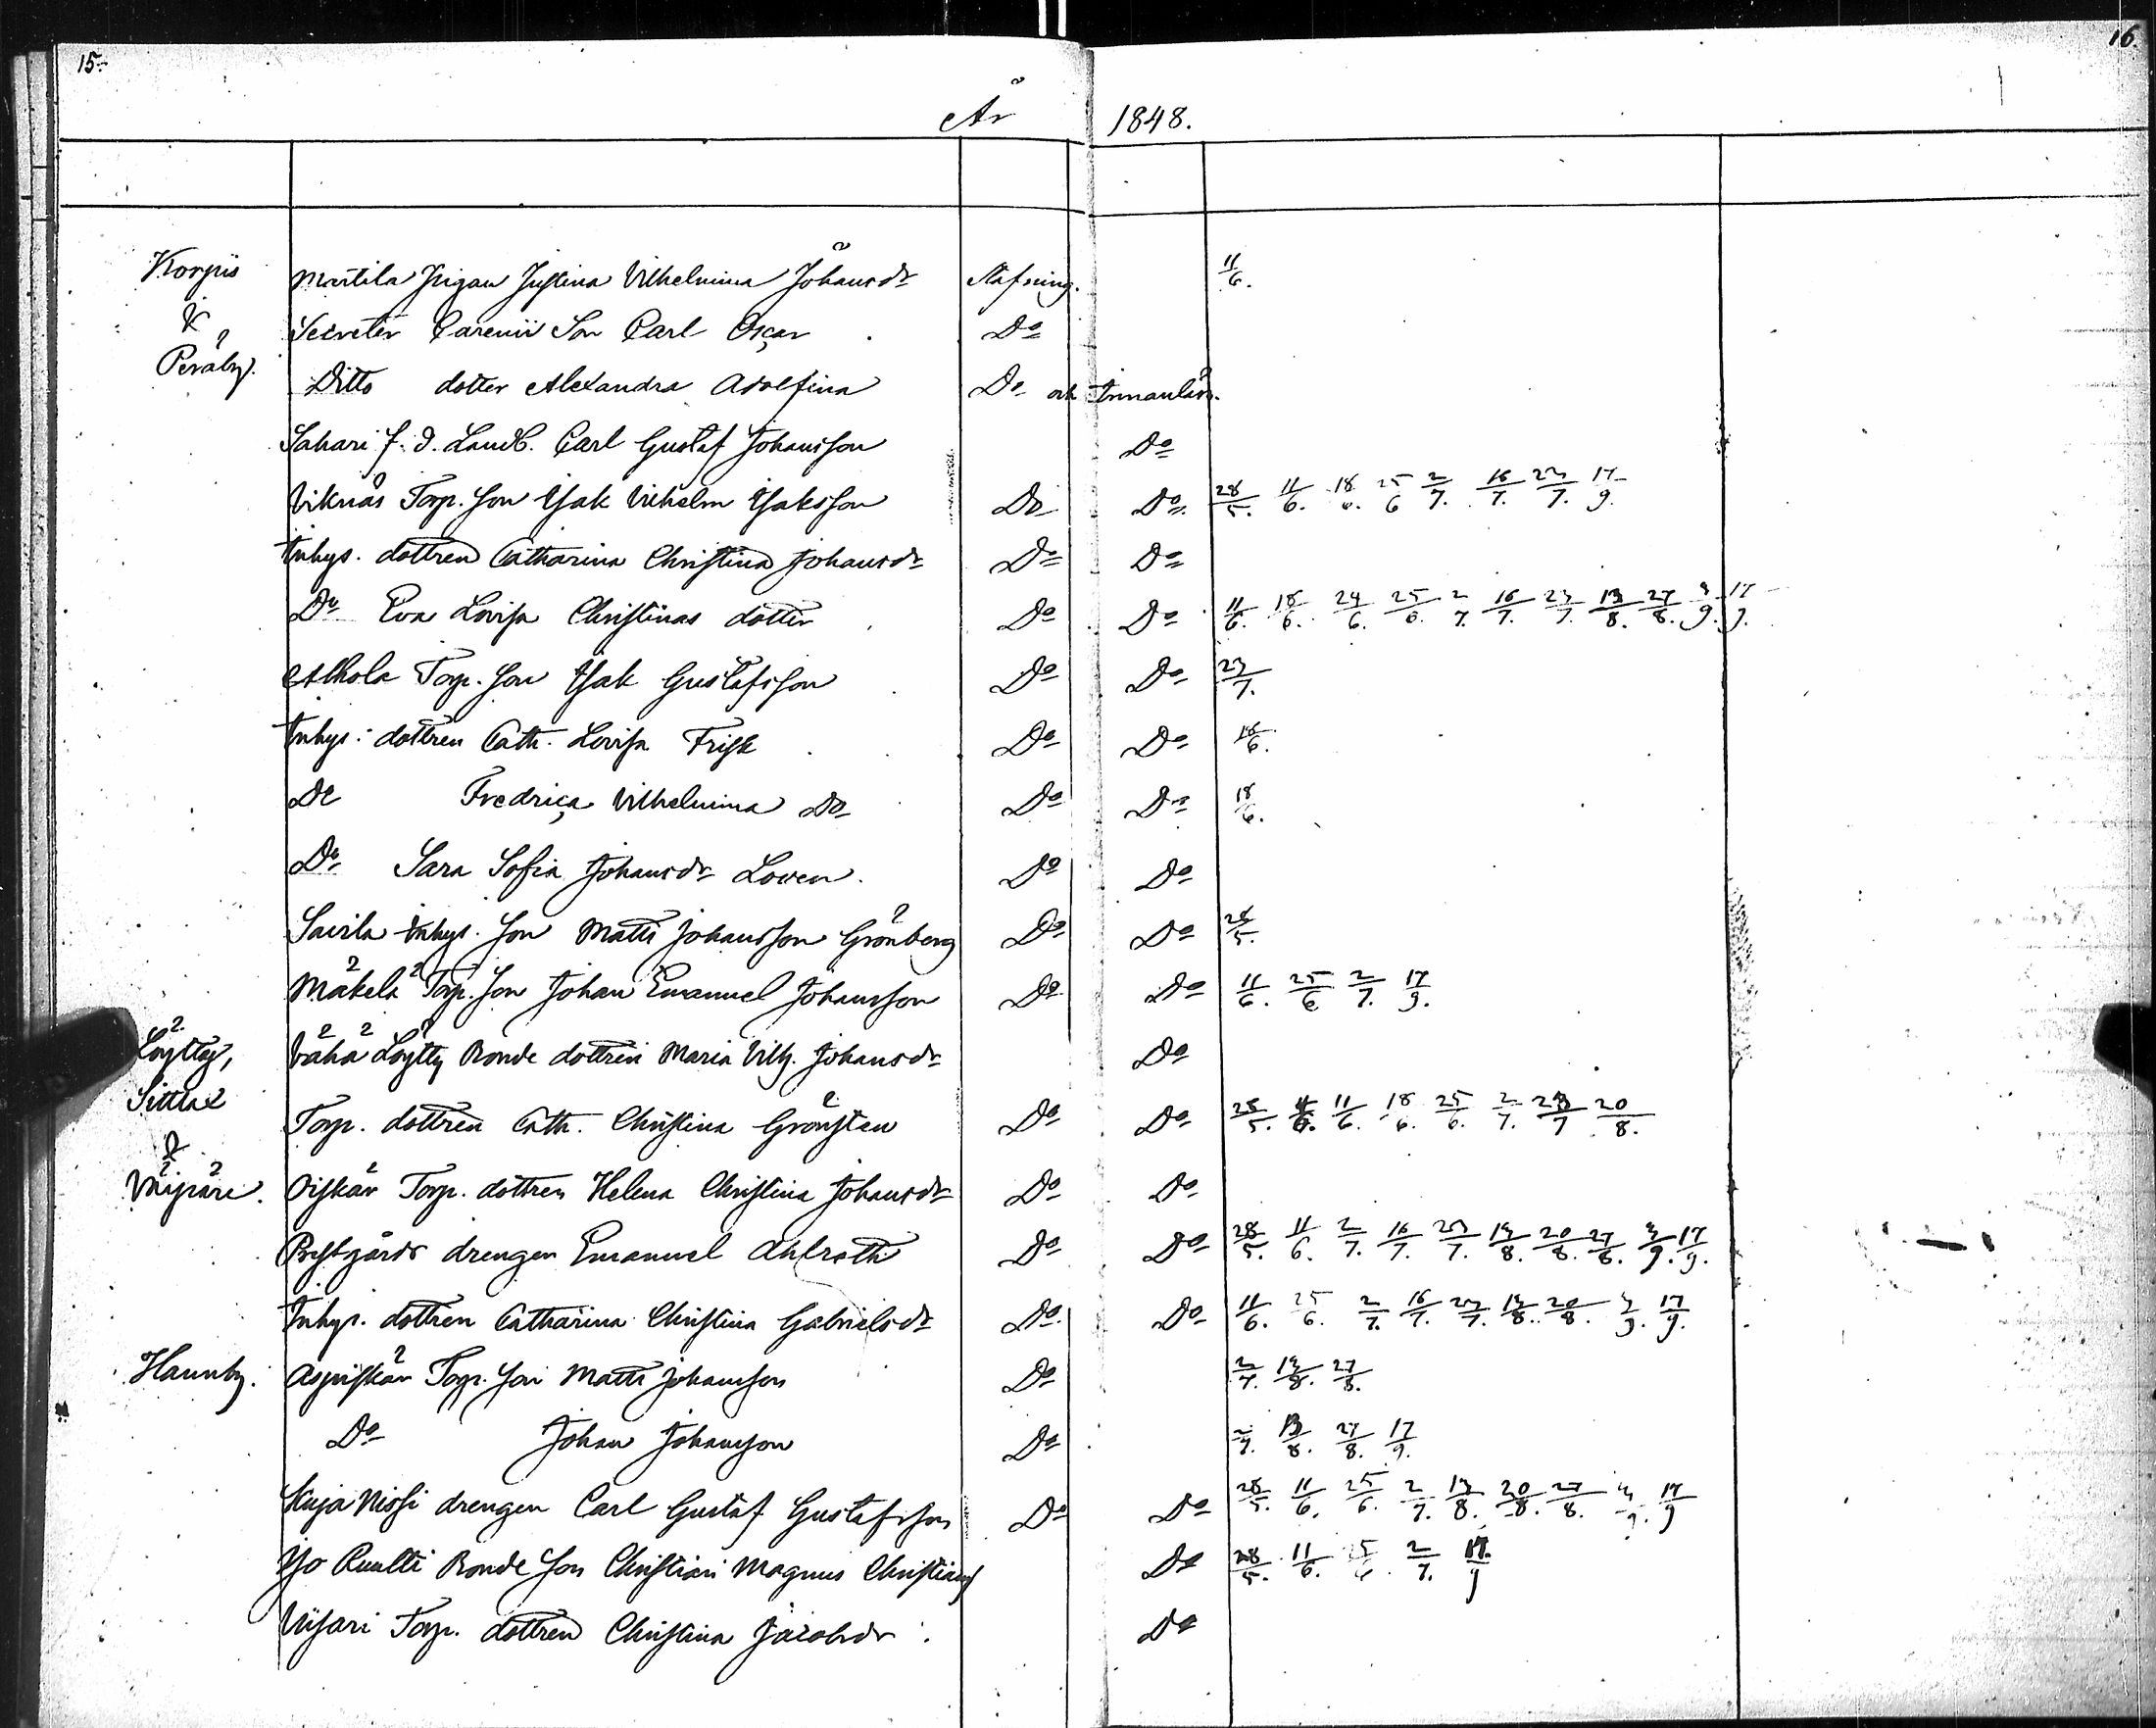 15. 16.
År 1848.
Korpis Martila Pigan Justina Vilhelmina Johansdr Stafning. 11/6.
& Secreter Carenii Son Carl Oscar Do
Peräby. Ditto dotter Alexandra Adolfina Do och Innanläs.
Sahari f. d. Landb. Carl Gustaf Johansson Do
Viknäs Torp. son Isak Vilhelm Isaksson Do Do 28/5. 11/6. 18/6. 25/6 2/7. 16/7. 23/7. 17/9.
Inhys. dottren Catharina Christina Johansdr Do Do
Do Eva Lovisa Christinas dotter Do Do 11/6. 18/6. 24/6. 25/6. 2/7. 16/7. 23/7. 13/8. 27/8. 3/9. 17/9.
Alhola Torp. son Isak Gustafsson Do Do 23/7.
Inhys: dottren Cath. Lovisa Frisk Do Do 18/6.
Do Fredrica Vilhelmina Do Do Do 18/6.
Do Sara Sofia Johansdr Loven. Do Do
Savila Inhys. son Matts Johansson Grönberg Do Do 28/5.
Mäkelä Torp. son Johan Emanuel Johansson Do Do 11/6. 25/6 2/7. 17/9.
Löytty, Vähä Löytty Bonde dottren Maria Vilh. Johansdr Do
Sittlax Torp. dottren Cath. Christina Grönsten Do Do 28/5. 11/6. 18/6. 25/6. 2/7. 23/7 20/8.
&
Viipäre. Oiskär Torp. dottren Helena Christina Johansdr Do Do
Prestgårds drengen Emanuel Ahlroth Do Do 28/5. 11/6. 2/7. 16/7. 23/7. 13/8. 20/8. 27/8. 3/9. 17/9.
Inhys. dottren Catharina Christina Gabrielsdr Do Do 11/6. 25/6. 2/7. 16/7. 23/7. 13/8. 20/8. 3/9. 17/9.
Hannby. Aspiskär Torp. son Matts Johansson Do 2/7. 13/8. 27/8.
Do Johan Johansson Do 2/7. 13/8. 27/8. 17/9.
Kuja Nissi drengen Carl Gustaf Gustafsson Do Do 28/5. 11/6. 25/6. 2/7. 13/8. 20/8. 27/8. 3/9. 17/9
Iso Ruulti Bonde son Christian Magnus Christians Do 28/5. 11/6. 25/6. 2/7. 17/9
Viisari Torp. dottren Christina Jacobsdr. Do